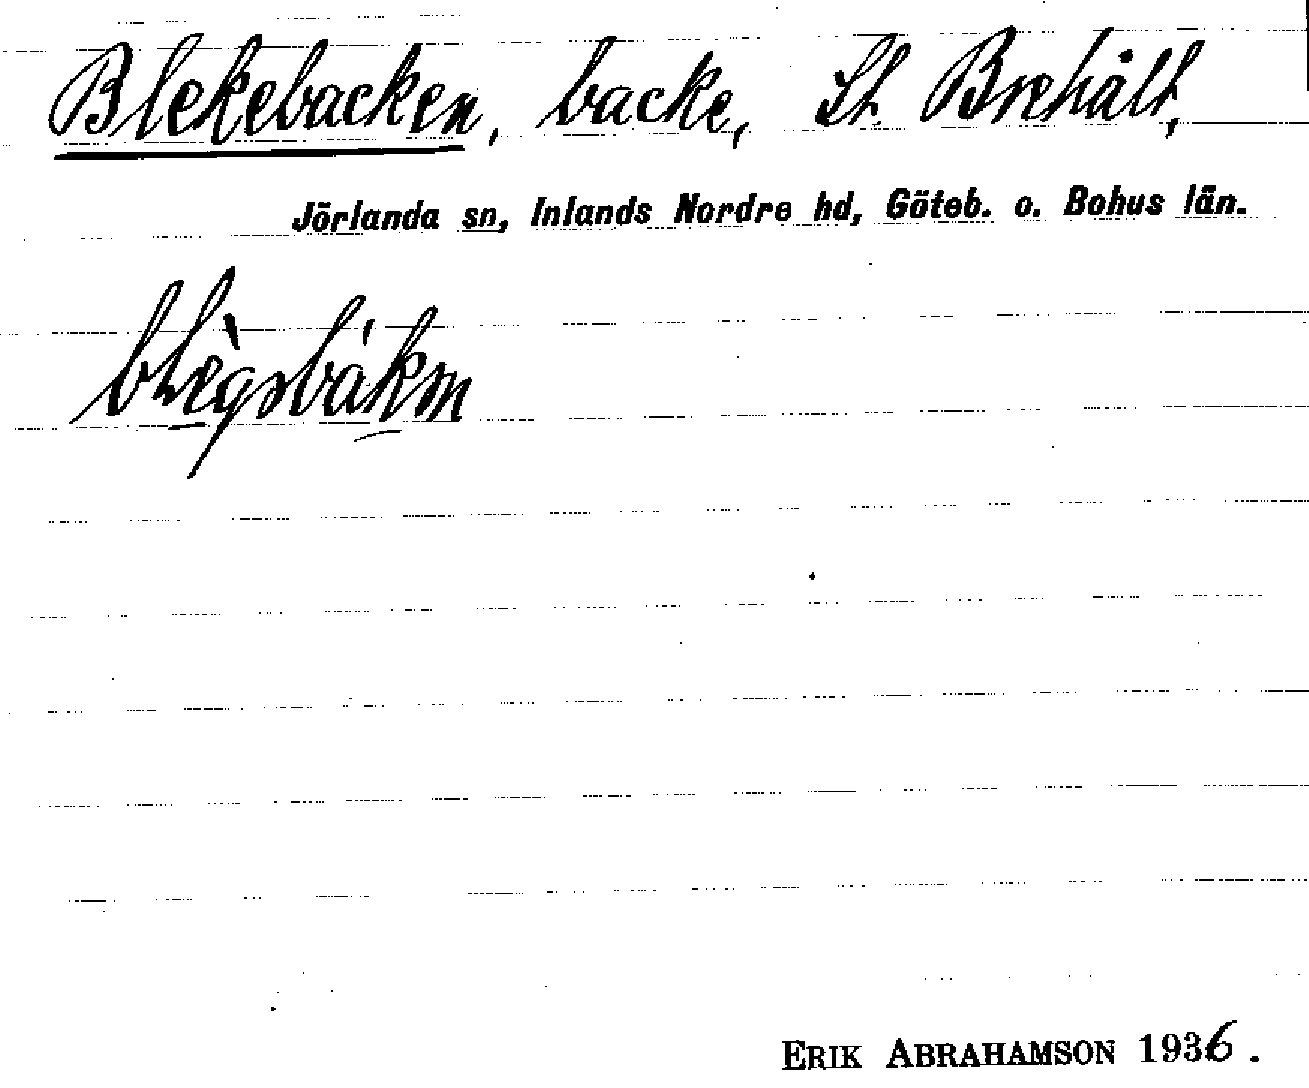 Blekebacken, backe, St. Brehält,
Jörlanda sn, Inlands Nordre hd, Göteb. o. Bohus län.
ERIK ABRAHAMSON 1936.